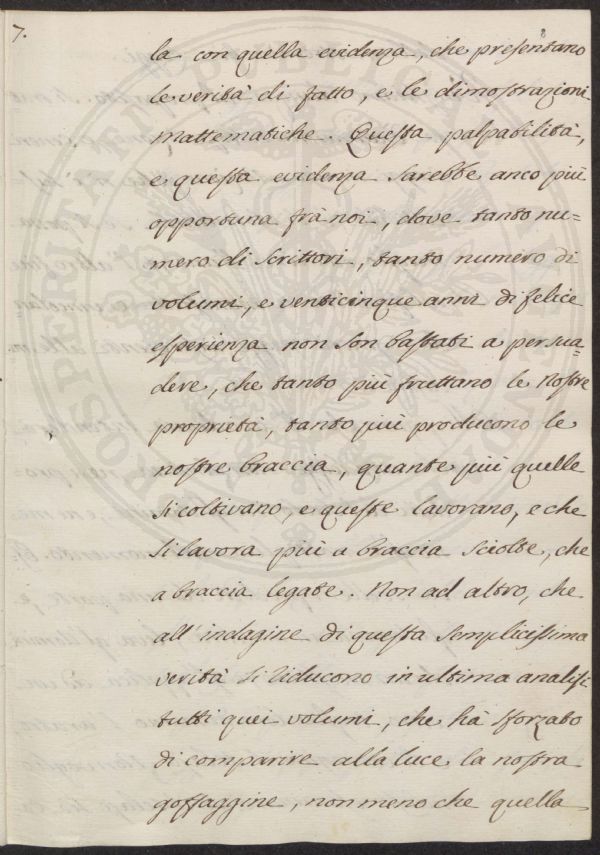 7.
la con quella evidenza, che presentano
le verità di fatto, e le dimostrazioni
mattematiche. Questa palpabilità,
e questa evidenza sarebbe anco più
opportuna frà noi, dove tanto nu=
mero di scrittori, tanto numero di
volumi, e venticinque anni di felice
esperienza non son bastati a persua=
dere, che tanto più fruttano le nostre
proprietà, tanto più producono le
nostre braccia, quante più quelle
si coltivano, e queste lavorano, e che
si lavora più a braccia sciolte, che
a braccia legate. Non ad altro, che
all'indagine di questa semplicissima
verità si riducono in ultima analisi
tutti quei volumi, che hà sforzato
di comparire alla luce la nostra
goffaggine, non meno che quella